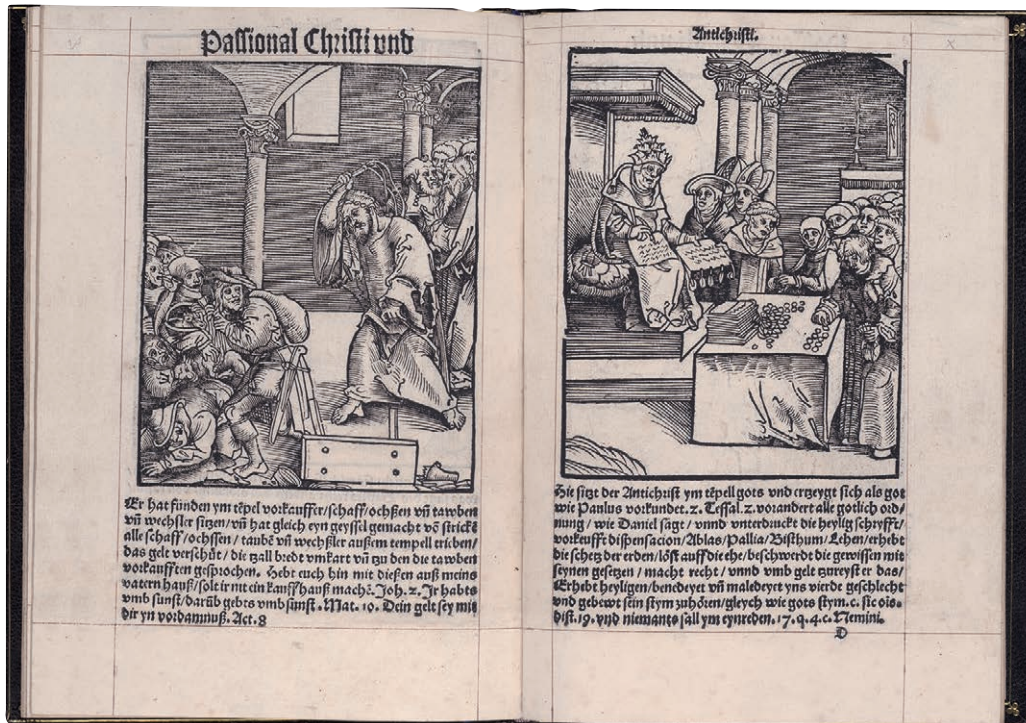 Passional Christi vnd
Er hat funden ym tẽpel vorkauffer/schaff/ochßen vñ tawben
vñ wechsler sitzen/vñ hat gleich eyn geyssel gemacht võ strickẽ
alle schaff/ochssen/taubẽ vñ wechßler außem tempell trieben/
das gelt verschüt/die tzall bredt vmkart vñ tzu den die tawben
vorkaufften gesprochen. Hebt euch hin mit dießen auß meins
vatern hauß/solt ir nit ein kauffhauß machẽ. Joh. 2. Ir habts
vmb sunst/darũb gebts vmb sunst. Mat. 10. Dein gelt sey mit
dir yn vordamnuß. Act. 8
Antichristi.
Hie sitzt der Antichrist ym tẽpell gots vnd ertzeygt sich als got
wie Paulus vorkundet. 2. Tessal. 2. vorandert alle gotlich ord-
nung/wie Daniel sagt/vnnd vnterdruckt die heylig schryfft/
vorkeufft dispensacion/Ablas/Pallia/Bisthum/Lehen/erhebt
die schetz der erden/löst auff die ehe/beschwerdt die gewissen mit
seynen gesetzen/macht recht/vnnd vmb gelt tzureyst er das/
Erhebt heyligen/benedeyet vñ maledeyet yns vierde geschlecht
vnd gebewt sein stym zuhören/gleych wie gots stym. c. sic ois.
dist. 19. vnd niewants sall ym eynreden. 17. q. 4. c. Nemini.
D